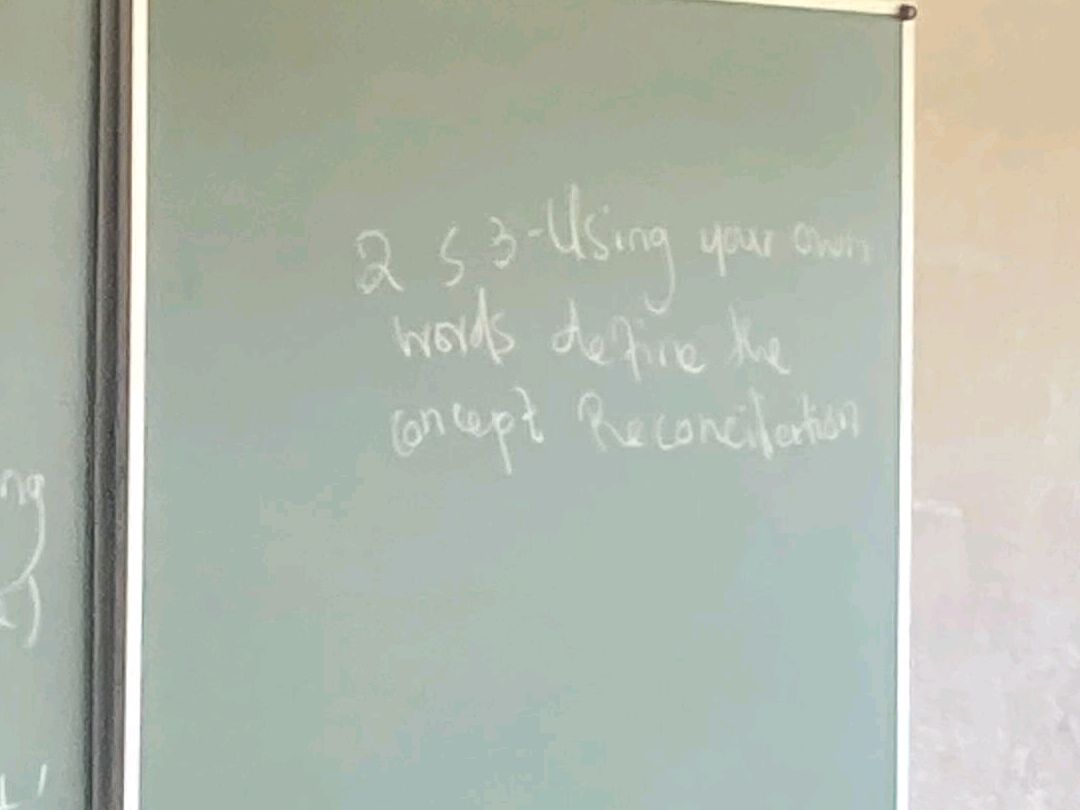 ng
2 5 3-Using your own
words define the
concept Reconciliation